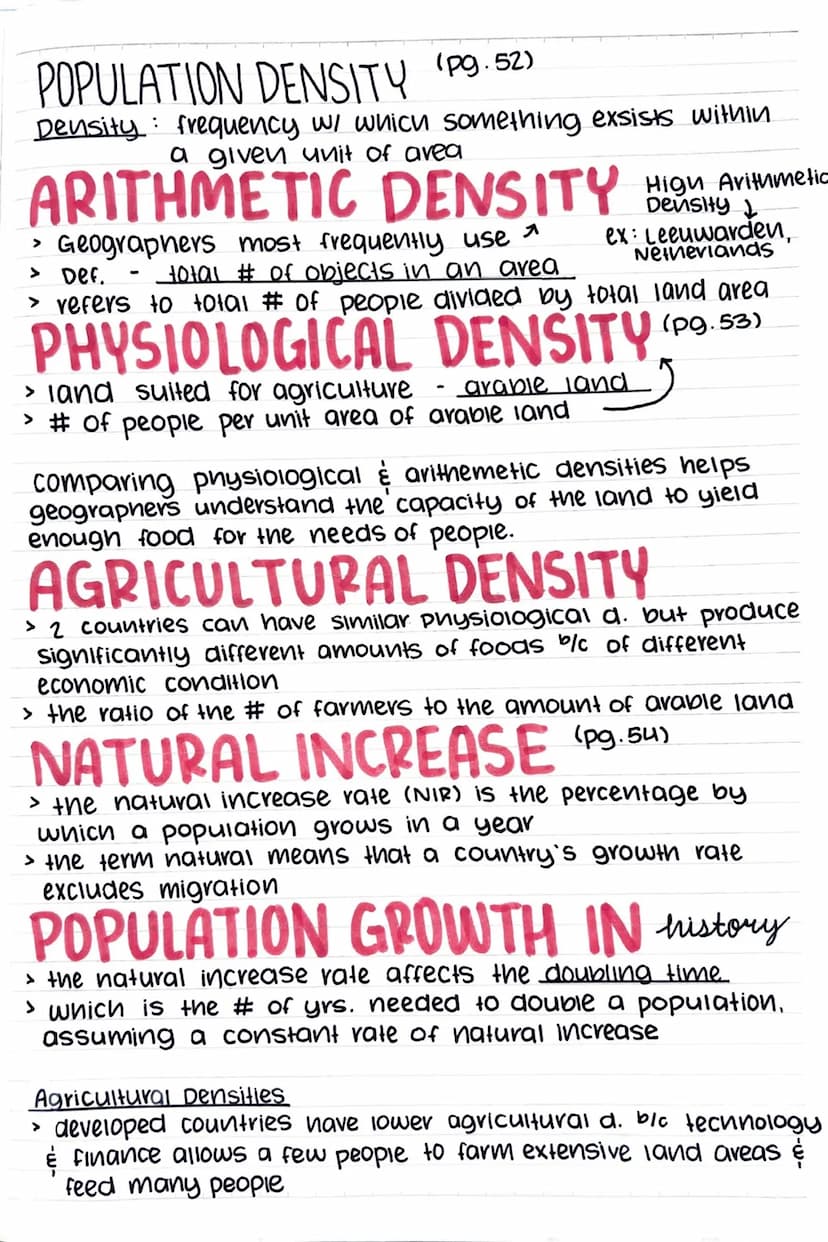 POPULATION DENSITY (pg. 52)
Density : frequency w/ which something exsists within
a given unit of area
ARITHMETIC DENSITY
High Arithmetic
Density ↓
ex: Leeuwarden,
Netherlands
> Geographers most frequently use ↗
> Def. - total # of objects in an area
> refers to total # of people divided by total land area
PHYSIOLOGICAL DENSITY (pg. 53)
> land suited for agriculture - arable land
> # of people per unit area of arable land
comparing physiological & arithemetic densities helps
geographers understand the capacity of the land to yield
enough food for the needs of people.
AGRICULTURAL DENSITY
> 2 countries can have similar physiological d. but produce
significantly different amounts of foods b/c of different
economic condition
> the ratio of the # of farmers to the amount of arable land
NATURAL INCREASE (pg. 54)
> the natural increase rate (NIR) is the percentage by
which a population grows in a year
> the term natural means that a country's growth rate
excludes migration
POPULATION GROWTH IN history
> the natural increase rate affects the doubling time
> which is the # of yrs. needed to double a population,
assuming a constant rate of natural increase
Agricultural Densities
> developed countries have lower agricultural d. b/c technology
& finance allows a few people to farm extensive land areas &
feed many people